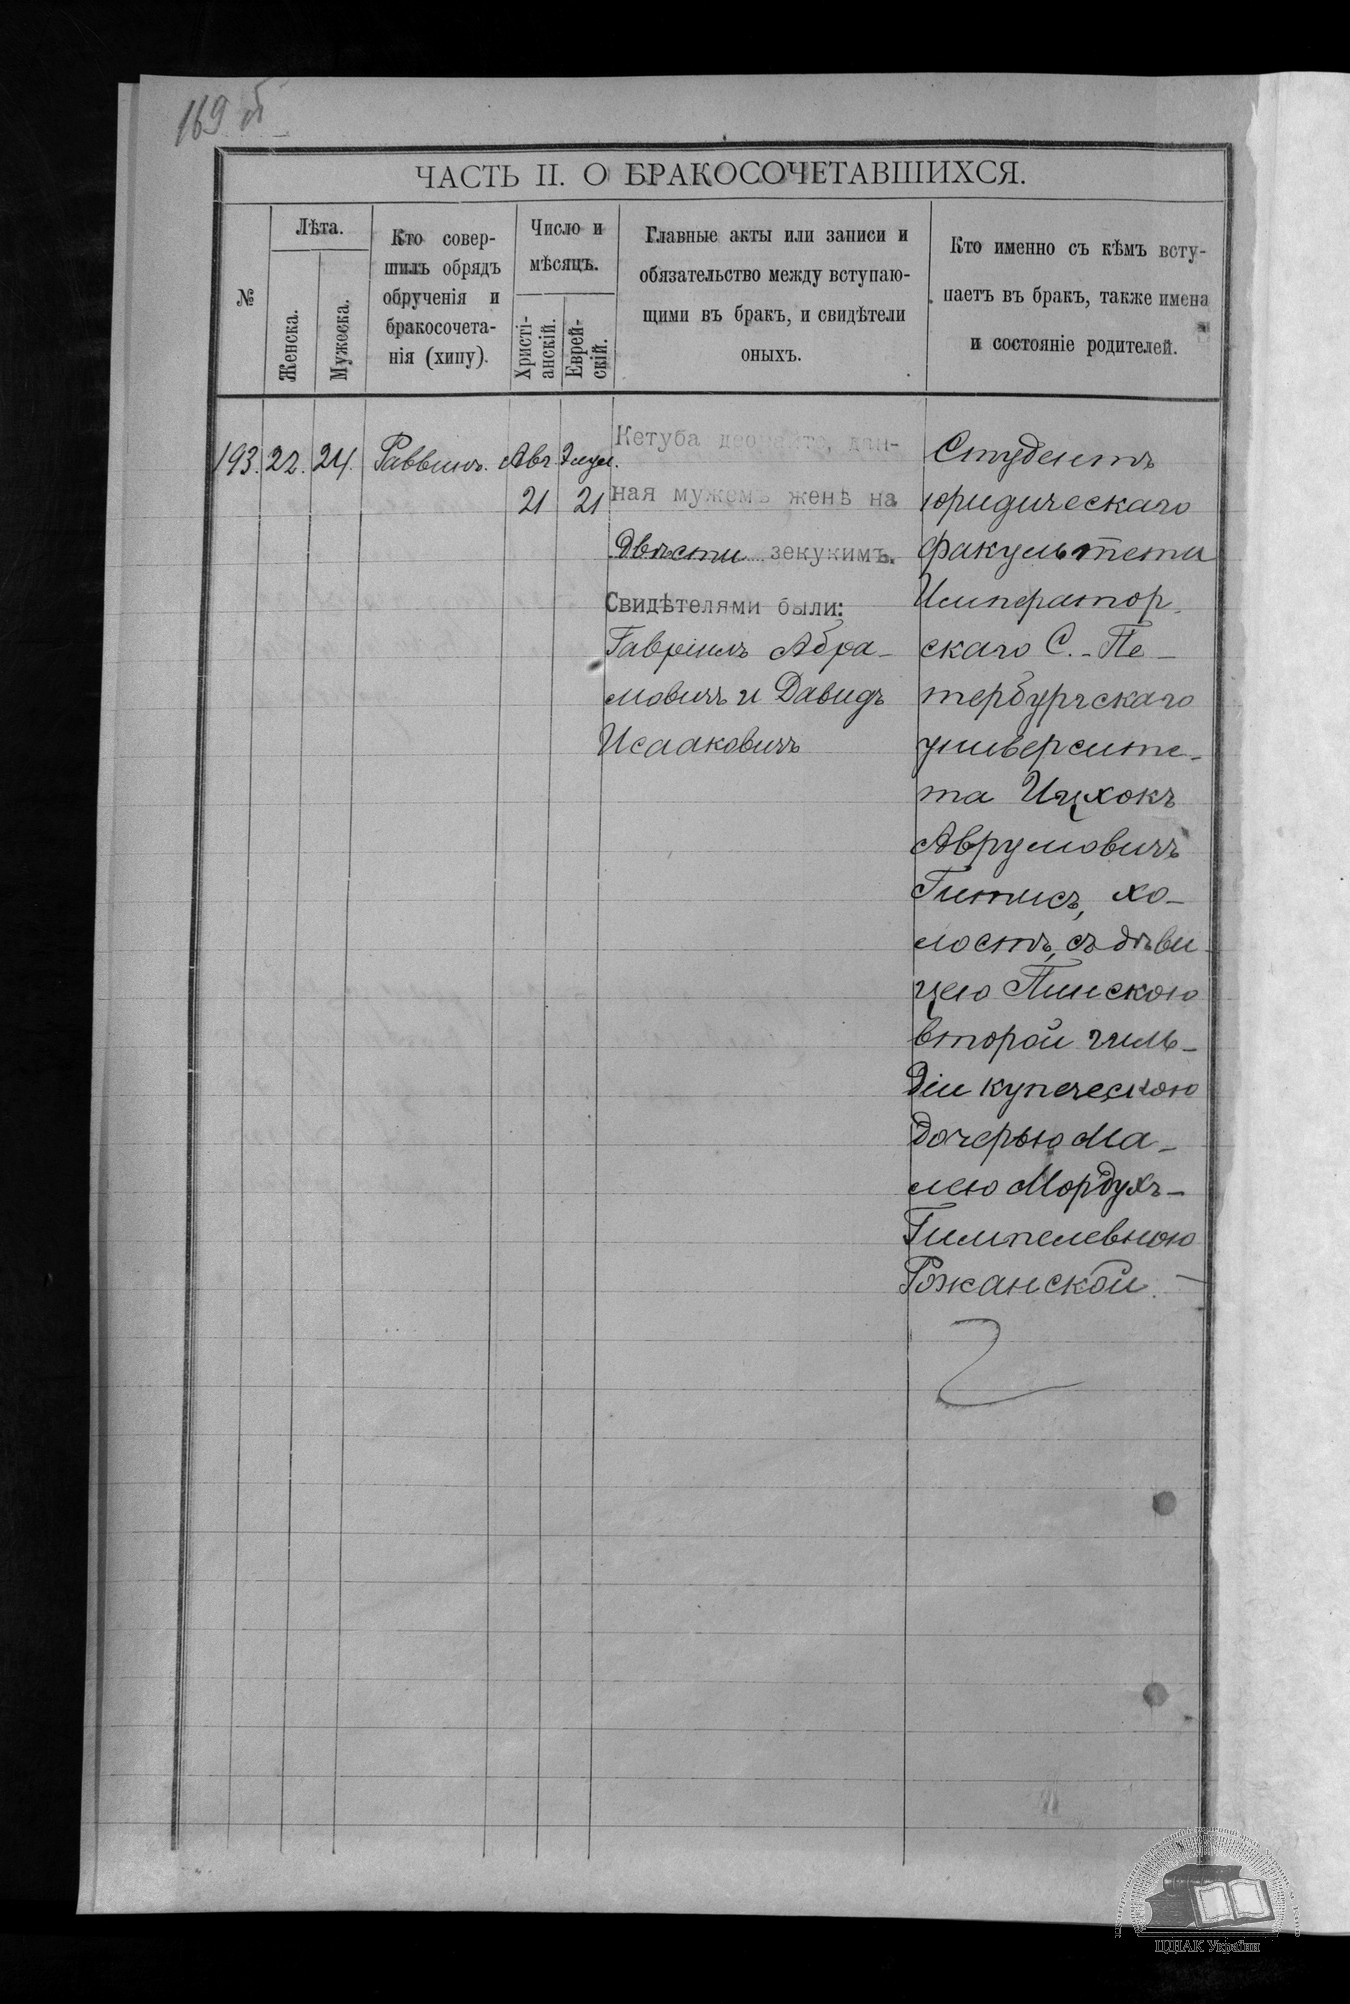 169 об
ЧАСТЬ II. О БРАКОСОЧЕТАВШИХСЯ.
№
Лѣта.
Женска.
Мужеска.
Кто совер-
шилъ обрядъ
обрученія и
бракосочета-
нія (хипу).
Число и
мѣсяцъ.
Христі-
анскій.
Еврей-
скій.
Главные акты или записи и
обязательство между вступаю-
щими въ бракъ, и свидѣтели
оныхъ.
Кто именно съ кѣмъ всту-
паетъ въ бракъ, также имена
и состояніе родителей.
193. 22. 24. Раввинъ. Авг Элул.
21 21
Кетуба деорайте, дан-
ная мужемъ женѣ на
Двѣсти зекукимъ.
Свидѣтелями были:
Гавріилъ Абра-
мовичъ и Давидъ
Исааковичъ
Студентъ
юридическаго
факультета
Император-
скаго С.-Пе-
тербургскаго
университе-
та Ицхокъ
Аврумовичъ
Гитисъ, хо-
лостъ, съ дѣви-
цею Пинскою
второй гиль-
діи купеческою
дочерью Ма-
лею Мордухъ-
Гимпелевною
Рожанской.
ЦДІАК України